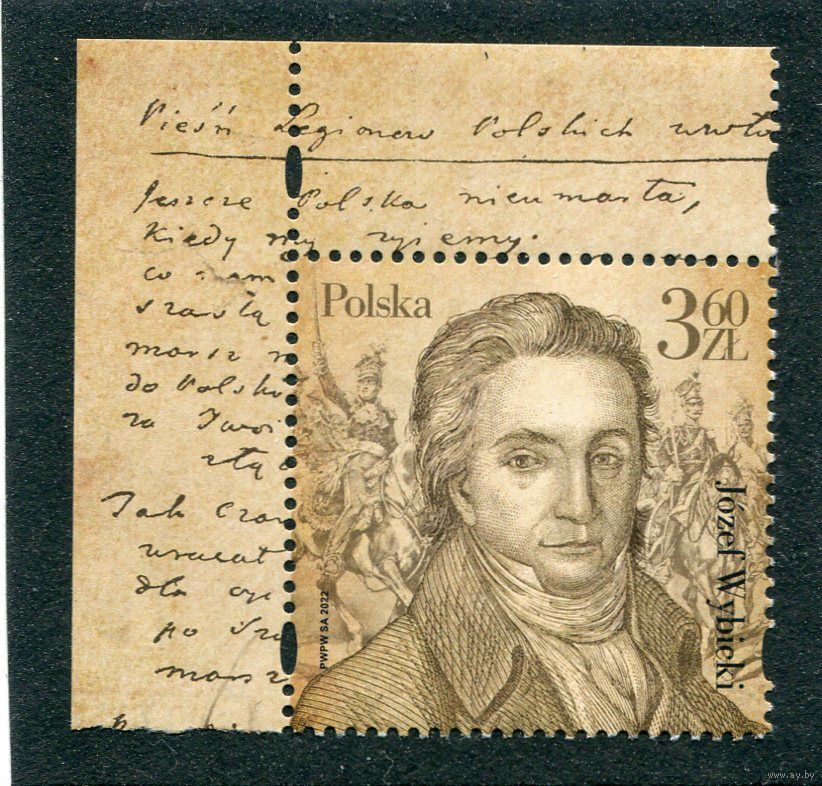 Pieśń Legionow Polskich wwło
Jeszcze Polska nieumarła,
kiedy my żyiemy.
co nam
szablą
marsz m
do Polsk
za Twoi
złą
Jak Czar
wracał
dla oy
po Sza
marsz
Polska
3 60 ZŁ
Józef Wybicki
PWPW SA 2022
www.ay.by